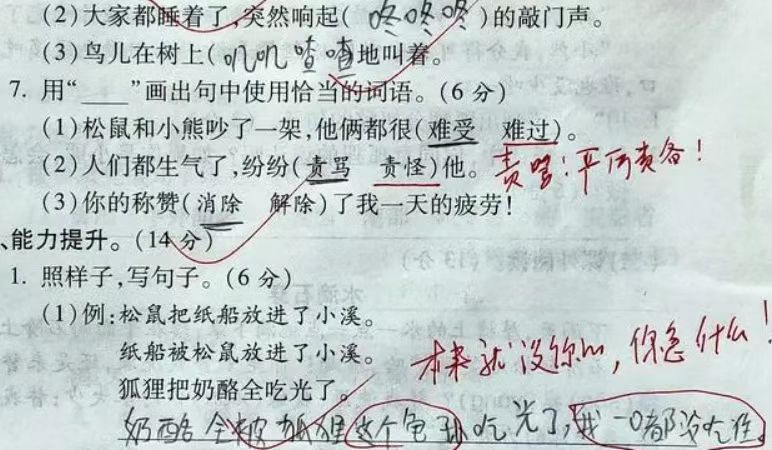 (2)大家都睡着了,突然响起(咚咚咚)的敲门声。
(3)鸟儿在树上(叽叽喳喳)地叫着。
7. 用“____”画出句中使用恰当的词语。(6分)
(1)松鼠和小熊吵了一架,他俩都很(难受 难过)。
(2)人们都生气了,纷纷(责骂 责怪)他。责骂:严厉责备!
(3)你的称赞(消除 解除)了我一天的疲劳!
、能力提升。(14分)
1. 照样子,写句子。(6分)
(1)例:松鼠把纸船放进了小溪。
纸船被松鼠放进了小溪。
本来就没你的,你急什么!
狐狸把奶酪全吃光了。
奶酪全被狐狸这个包孙吃光了,我一口都没吃准。